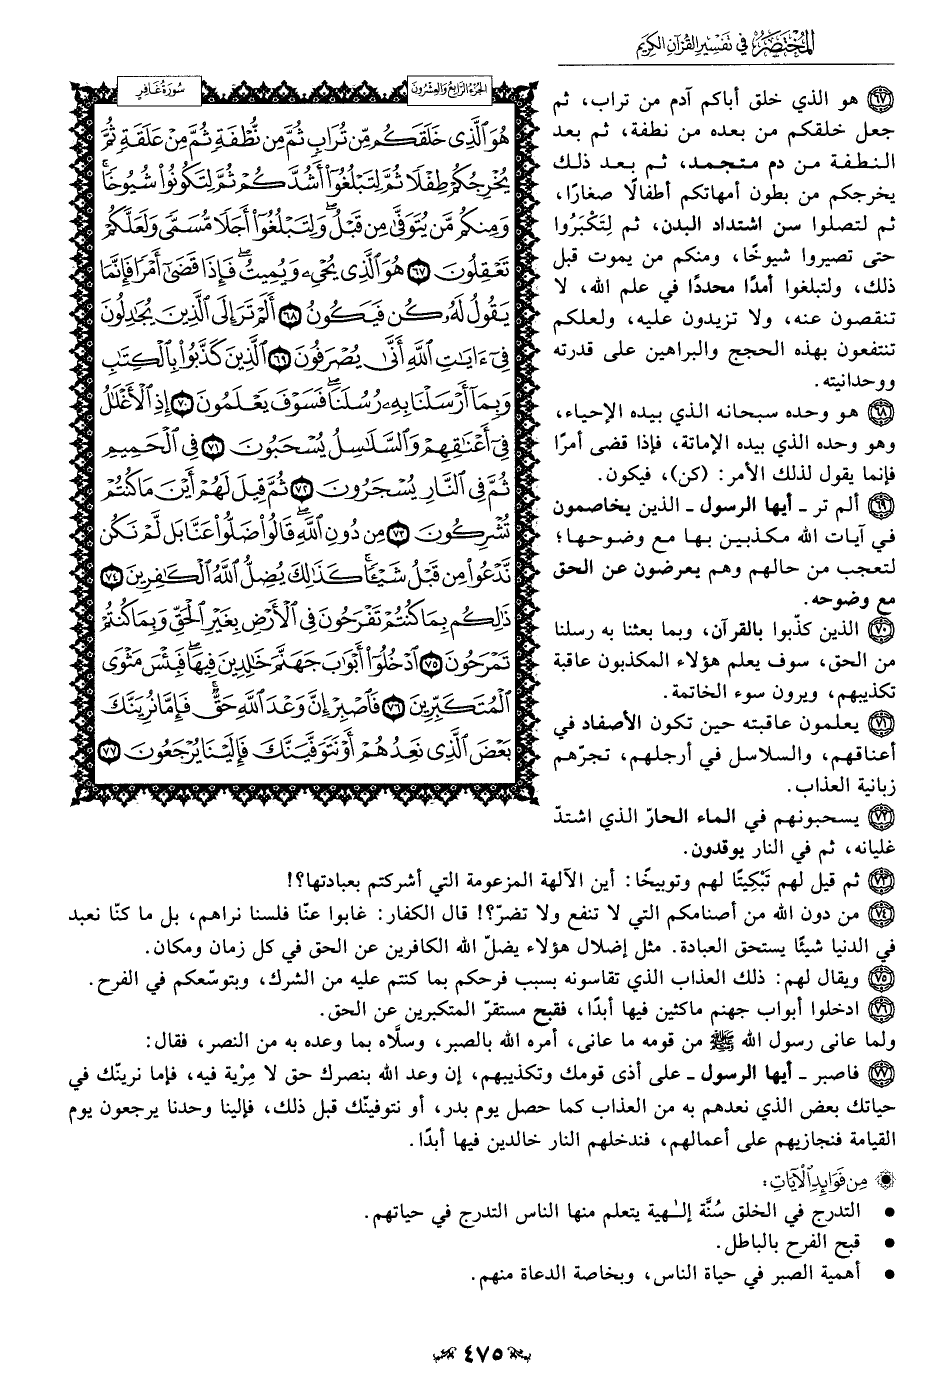 المختصر في تفسير القرآن الكريم
الجزء الرابع والعشرون
سورة غافر
هُوَ ٱلَّذِي خَلَقَكُم مِّن تُرَابٖ ثُمَّ مِن نُّطۡفَةٖ ثُمَّ مِنۡ عَلَقَةٖ ثُمَّ
يُخۡرِجُكُمۡ طِفۡلٗا ثُمَّ لِتَبۡلُغُوٓاْ أَشُدَّكُمۡ ثُمَّ لِتَكُونُواْ شُيُوخٗاۚ
وَمِنكُم مَّن يُتَوَفَّىٰ مِن قَبۡلُۖ وَلِتَبۡلُغُوٓاْ أَجَلٗا مُّسَمّٗى وَلَعَلَّكُمۡ
تَعۡقِلُونَ ٦٧ هُوَ ٱلَّذِي يُحۡيِۦ وَيُمِيتُۖ فَإِذَا قَضَىٰٓ أَمۡرٗا فَإِنَّمَا
يَقُولُ لَهُۥ كُن فَيَكُونُ ٦٨ أَلَمۡ تَرَ إِلَى ٱلَّذِينَ يُجَٰدِلُونَ
فِيٓ ءَايَٰتِ ٱللَّهِ أَنَّىٰ يُصۡرَفُونَ ٦٩ ٱلَّذِينَ كَذَّبُواْ بِٱلۡكِتَٰبِ
وَبِمَآ أَرۡسَلۡنَا بِهِۦ رُسُلَنَاۖ فَسَوۡفَ يَعۡلَمُونَ ٧٠ إِذِ ٱلۡأَغۡلَٰلُ
فِيٓ أَعۡنَٰقِهِمۡ وَٱلسَّلَٰسِلُ يُسۡحَبُونَ ٧١ فِي ٱلۡحَمِيمِ
ثُمَّ فِي ٱلنَّارِ يُسۡجَرُونَ ٧٢ ثُمَّ قِيلَ لَهُمۡ أَيۡنَ مَا كُنتُمۡ
تُشۡرِكُونَ ٧٣ مِن دُونِ ٱللَّهِۖ قَالُواْ ضَلُّواْ عَنَّا بَل لَّمۡ نَكُن
نَّدۡعُواْ مِن قَبۡلُ شَيۡـٔٗاۚ كَذَٰلِكَ يُضِلُّ ٱللَّهُ ٱلۡكَٰفِرِينَ ٧٤
ذَٰلِكُم بِمَا كُنتُمۡ تَفۡرَحُونَ فِي ٱلۡأَرۡضِ بِغَيۡرِ ٱلۡحَقِّ وَبِمَا كُنتُمۡ
تَمۡرَحُونَ ٧٥ ٱدۡخُلُوٓاْ أَبۡوَٰبَ جَهَنَّمَ خَٰلِدِينَ فِيهَاۖ فَبِئۡسَ مَثۡوَى
ٱلۡمُتَكَبِّرِينَ ٧٦ فَٱصۡبِرۡ إِنَّ وَعۡدَ ٱللَّهِ حَقّٞۚ فَإِمَّا نُرِيَنَّكَ
بَعۡضَ ٱلَّذِي نَعِدُهُمۡ أَوۡ نَتَوَفَّيَنَّكَ فَإِلَيۡنَا يُرۡجَعُونَ ٧٧
٦٧ هو الذي خلق أباكم آدم من تراب، ثم
جعل خلقكم من بعده من نطفة، ثم بعد
النطفة من دم متجمد، ثم بعد ذلك
يخرجكم من بطون أمهاتكم أطفالًا صغارًا،
ثم لتصلوا سن اشتداد البدن، ثم لِتَكْبَرُوا
حتى تصيروا شيوخًا، ومنكم من يموت قبل
ذلك، ولتبلغوا أمدًا محددًا في علم الله، لا
تنقصون عنه، ولا تزيدون عليه، ولعلكم
تنتفعون بهذه الحجج والبراهين على قدرته
ووحدانيته.
٦٨ هو وحده سبحانه الذي بيده الإحياء،
وهو وحده الذي بيده الإماتة، فإذا قضى أمرًا
فإنما يقول لذلك الأمر: (كن)، فيكون.
٦٩ ألم تر - أيها الرسول - الذين يخاصمون
في آيات الله مكذبين بها مع وضوحها؛
لتعجب من حالهم وهم يعرضون عن الحق
مع وضوحه.
٧٠ الذين كذّبوا بالقرآن، وبما بعثنا به رسلنا
من الحق، سوف يعلم هؤلاء المكذبون عاقبة
تكذيبهم، ويرون سوء الخاتمة.
٧١ يعلمون عاقبته حين تكون الأصفاد في
أعناقهم، والسلاسل في أرجلهم، تجرّهم
زبانية العذاب.
٧٢ يسحبونهم في الماء الحارّ الذي اشتدّ
غليانه، ثم في النار يوقدون.
٧٣ ثم قيل لهم تَبْكِيتًا لهم وتوبيخًا: أين الآلهة المزعومة التي أشركتم بعبادتها؟!
٧٤ من دون الله من أصنامكم التي لا تنفع ولا تضرّ؟! قال الكفار: غابوا عنّا فلسنا نراهم، بل ما كنّا نعبد
في الدنيا شيئًا يستحق العبادة. مثل إضلال هؤلاء يضلّ الله الكافرين عن الحق في كل زمان ومكان.
٧٥ ويقال لهم: ذلك العذاب الذي تقاسونه بسبب فرحكم بما كنتم عليه من الشرك، وبتوسّعكم في الفرح.
٧٦ ادخلوا أبواب جهنم ماكثين فيها أبدًا، فقبح مستقرّ المتكبرين عن الحق.
ولما عانى رسول الله ﷺ من قومه ما عانى، أمره الله بالصبر، وسلَّاه بما وعده به من النصر، فقال:
٧٧ فاصبر - أيها الرسول - على أذى قومك وتكذيبهم، إن وعد الله بنصرك حق لا مِرْية فيه، فإما نرينّك في
حياتك بعض الذي نعدهم به من العذاب كما حصل يوم بدر، أو نتوفينّك قبل ذلك، فإلينا وحدنا يرجعون يوم
القيامة فنجازيهم على أعمالهم، فندخلهم النار خالدين فيها أبدًا.
من فوائد الآيات:
• التدرج في الخلق سُنَّة إلـٰهية يتعلم منها الناس التدرج في حياتهم.
• قبح الفرح بالباطل.
• أهمية الصبر في حياة الناس، وبخاصة الدعاة منهم.
٤٧٥